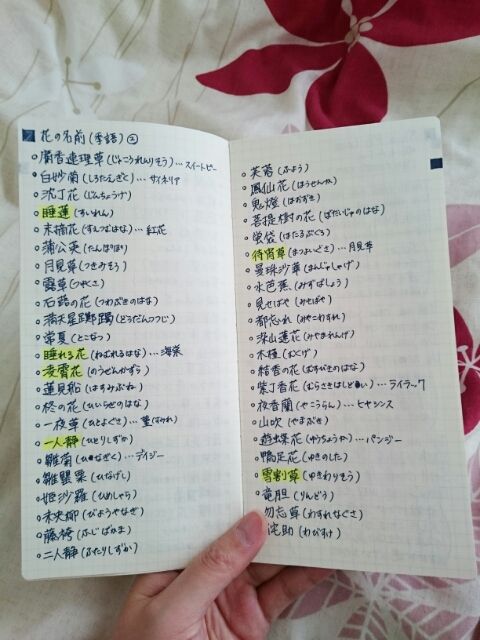 花の名前(季語)②
麝香連理草(じゃこうれんりそう)…スイートピー
白妙菊(しろたえぎく)…サイネリア
沈丁花(じんちょうげ)
睡蓮(すいれん)
末摘花(すえつむはな)…紅花
蒲公英(たんぽぽ)
月見草(つきみそう)
露草(つゆくさ)
石蕗の花(つわぶきのはな)
満天星躑躅(どうだんつつじ)
常夏(とこなつ)
睡れる花(ねむれるはな)…海棠
凌霄花(のうぜんかずら)
蓮見船(はすみぶね)
柊の花(ひいらぎのはな)
一夜草(ひとよぐさ)…菫(すみれ)
一人静(ひとりしずか)
雛菊(ひなぎく)…デイジー
雛罌粟(ひなげし)
姫沙羅(ひめしゃら)
未央柳(びようやなぎ)
藤袴(ふじばかま)
二人静(ふたりしずか)
芙蓉(ふよう)
鳳仙花(ほうせんか)
鬼燈(ほおずき)
菩提樹の花(ぼだいじゅのはな)
蛍袋(ほたるぶくろ)
待宵草(まつよいぐさ)…月見草
曼珠沙華(まんじゅしゃげ)
水芭蕉(みずばしょう)
見せばや(みせばや)
都忘れ(みやこわすれ)
深山蓮花(みやまれんげ)
木槿(むくげ)
結香の花(むすびきのはな)
紫丁香花(むらさきはしどい)…ライラック
夜香蘭(やこうらん)…ヒヤシンス
山吹(やまぶき)
遊蝶花(ゆうちょうか)…パンジー
鴨足花(ゆきのした)
雪割草(ゆきわりそう)
竜胆(りんどう)
勿忘草(わすれなぐさ)
侘助(わびすけ)